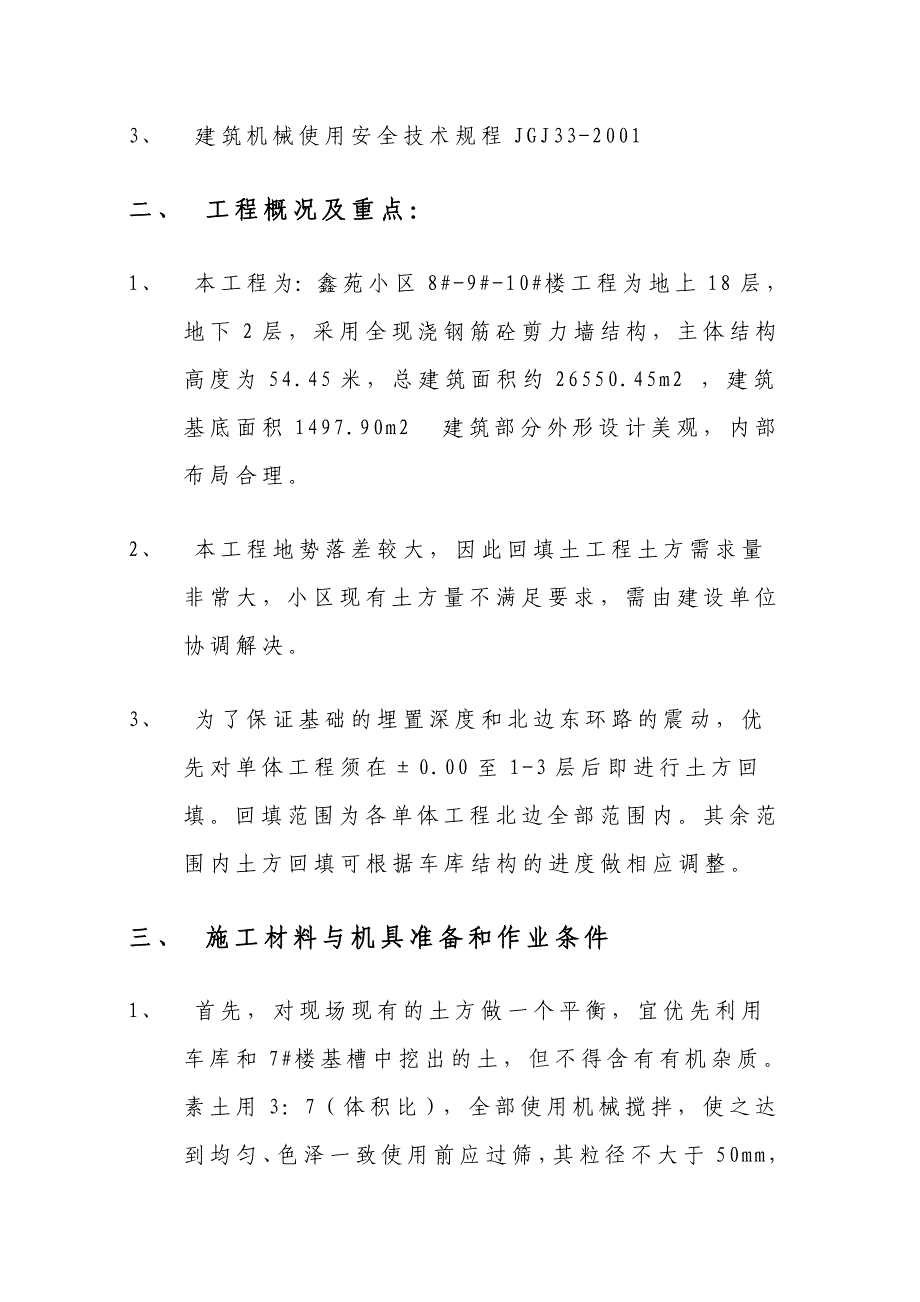 3、 建筑机械使用安全技术规程 JGJ33-2001
二、 工程概况及重点：
1、 本工程为：鑫苑小区 8#-9#-10#楼工程为地上 18 层，
地下 2 层，采用全现浇钢筋砼剪力墙结构，主体结构
高度为 54.45 米，总建筑面积约 26550.45m2 ，建筑
基底面积 1497.90m2 建筑部分外形设计美观，内部
布局合理。
2、 本工程地势落差较大，因此回填土工程土方需求量
非常大，小区现有土方量不满足要求，需由建设单位
协调解决。
3、 为了保证基础的埋置深度和北边东环路的震动，优
先对单体工程须在±0.00 至 1-3 层后即进行土方回
填。回填范围为各单体工程北边全部范围内。其余范
围内土方回填可根据车库结构的进度做相应调整。
三、 施工材料与机具准备和作业条件
1、 首先，对现场现有的土方做一个平衡，宜优先利用
车库和 7#楼基槽中挖出的土，但不得含有有机杂质。
素土用 3：7（体积比），全部使用机械搅拌，使之达
到均匀、色泽一致使用前应过筛，其粒径不大于 50mm，